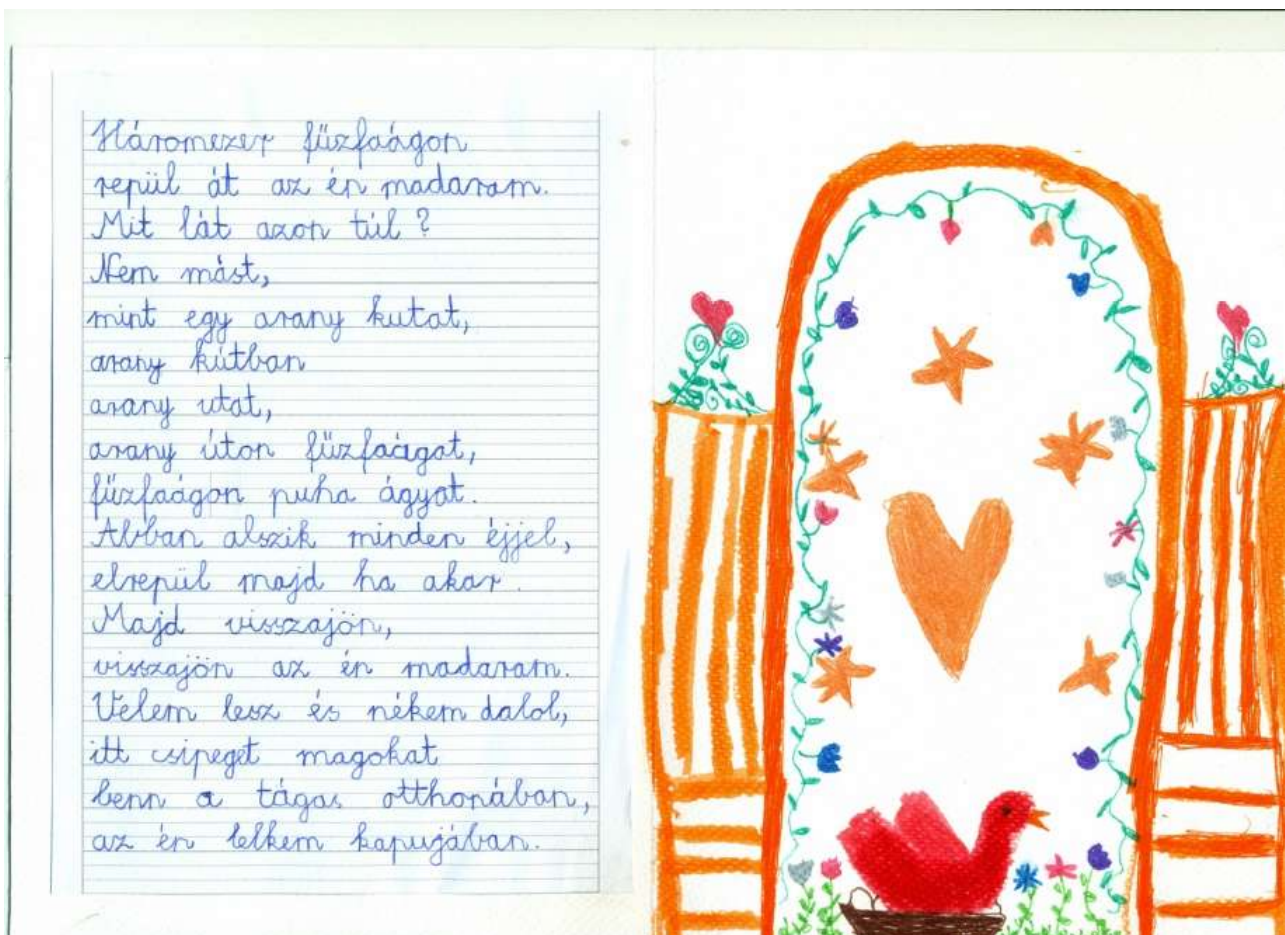 Háromezer fűzfaágon
repül át az én madaram.
Mit lát azon túl?
Nem mást,
mint egy arany kutat,
arany kútban
arany utat,
arany úton fűzfaágat,
fűzfaágon puha ágyat.
Abban alszik minden éjjel,
elrepül majd ha akar.
Majd visszajön,
visszajön az én madaram.
Velem lesz és nékem dalol,
itt csipeget magokat
benn a tágas otthonában,
az én lelkem kapujában.